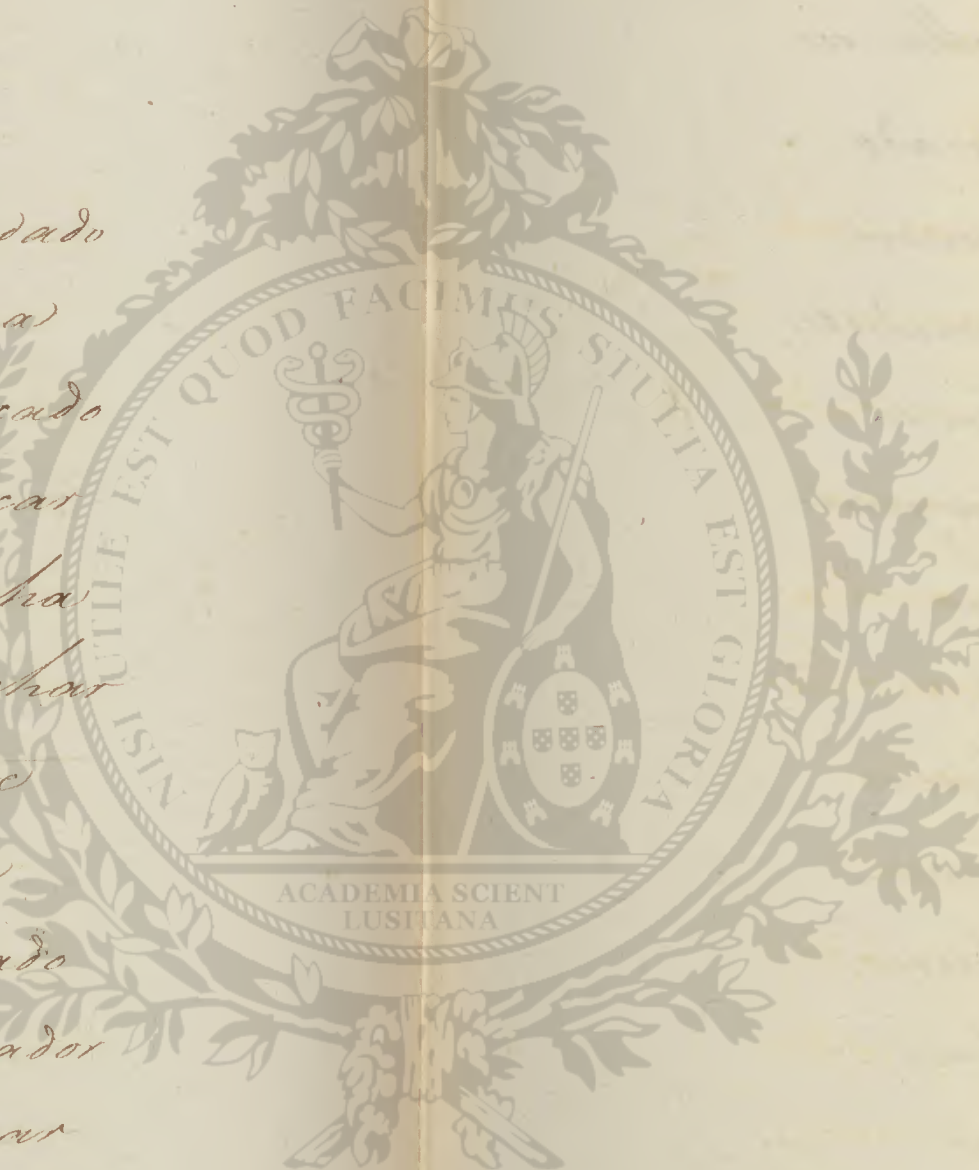 dado
a
cado
car
ha
har
ado
ador
ar
NISI UTILE EST QUOD FACIMUS STULTA EST GLORIA
ACADEMIA SCIENT
LUSITANA